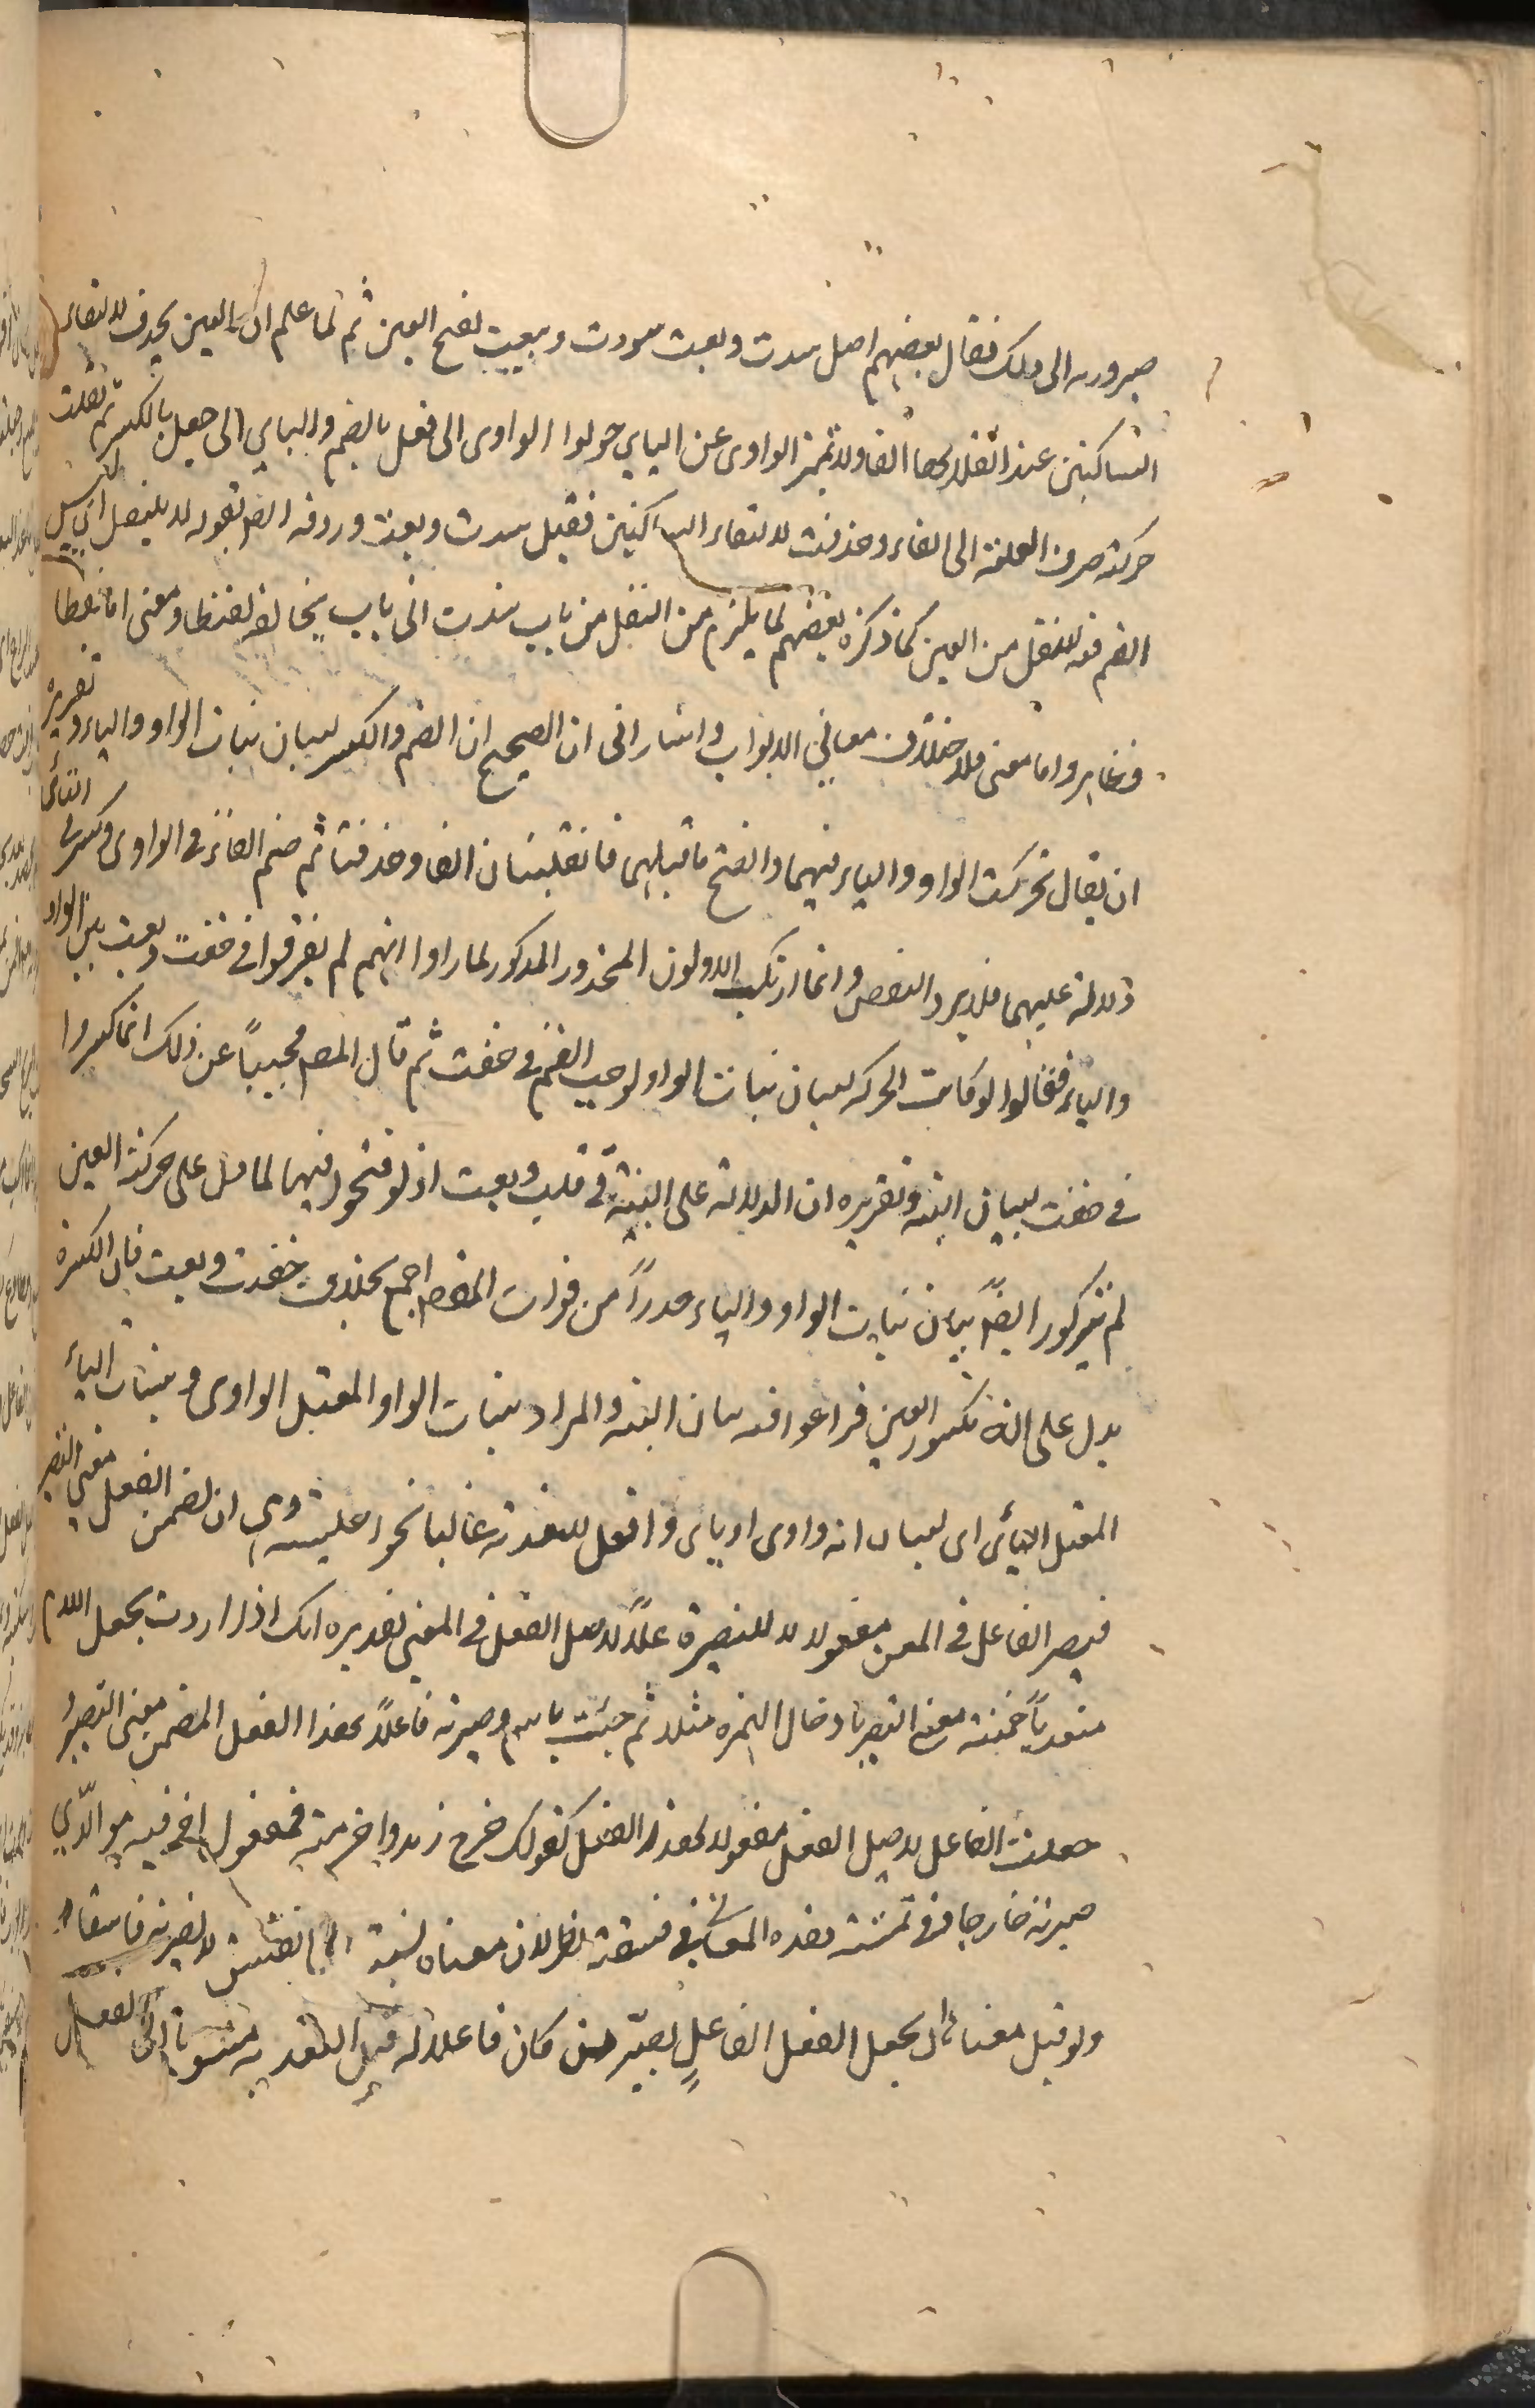 صيرورته الى ذلك فقال بعضهم اصل سدت وبعت سودت وبيعت بفتح العين ثم لما علم ان العين يحذف لالتقاء
الساكنين عند انقلابها الفا ولا تميز الواوى عن اليايي حولوا الواوى الى فعل بالضم واليايي الى فعل بالكسر ثم نقلت
حركة حرف العلة الى الفاء وحذفت لالتقاء الساكنين فقيل سدت وبعت ورده المص بقوله لا للنقل اى ليس
الضم فيه للنقل من العين كما ذكره بعضهم لما يلزم من النقل من باب سدت الى باب يخالفه لفظا ومعنى اما لفظا
فظاهر واما معنى فلاختلاف معاني الابواب واشار الى ان الصحيح ان الضم والكسر لبيان بنات الواو والياء وتقريره
ان يقال تحركت الواو والياء فيهما وانفتح ما قبلهما فانقلبتا الفا وحذفتا ثم ضم الفاء فى الواوى وكسر فى اليائى
دلالة عليهما فلا يرد النقض وانما ارتكب الاولون المحذور المذكور لما راوا انهم لم يفرقوا فى خفت وبعت بين الواو
والياء فقالوا لو كانت الحركة لبيان بنات الواو لوجب الضم فى خفت ثم قال المصم مجيباً عن ذلك انما كسروا
فى خفت لبيان البنية وتقريره ان الدلالة على البنية فى قلت وبعت اذ لو فتحوا فيهما لما دل على حركة العين
لم يتركوا ايضاً بيان بنات الواو والياء حذراً من فوات المقصد اجمع بخلاف خفت وبعت فان الكسرة
يدل على انه مكسور العين فراعوا فيه بيان البنية والمراد ببنات الواو المعتل الواوى وببنات الياء
المعتل اليائى اى لبيان انه واوى او ياى وافعل للتعدية غالبا نحو اجلسته وهى ان تضمن الفعل معنى التصيير
فيصير الفاعل فى المعنى مفعولا للتصيير فاعلاً لاصل الفعل فى المعنى تقديره انك اذا اردت بجعل اللازم
متعدياً ضمنته معنى التصيير بادخال الهمزة مثلا ثم جئت باسم وصيرته فاعلاً لهذا الفعل المضمن معنى التصيير
وجعلت الفاعل لاصل الفعل مفعولا لهذا الفعل كقولك خرج زيد واخرجته فمفعول اخرجته هو الذي
صيرته خارجا وفى تمشية هذه المعانى فى فسقته نظر لان معناه نسبته الى الفسق لا صيرته فاسقا
ولو قيل معناه ان يجعل الفعل الفاعل يصير من كان فاعلا له قبل التعدية منسوبا الى الفعل